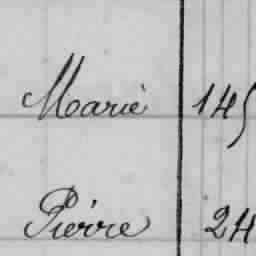 Marie 145
Pierre 24